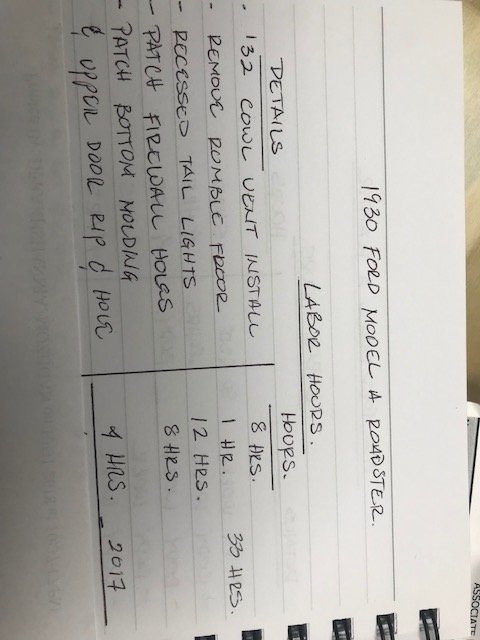 1930 FORD MODEL A ROADSTER.
LABOR HOURS.
DETAILS HOURS.
- 132 COWL VENT INSTALL 8 HRS.
- REMOVE RUMBLE FLOOR 1 HR. 33 HRS.
- RECESSED TAIL LIGHTS 12 HRS.
- PATCH FIREWALL HOLES 8 HRS.
- PATCH BOTTOM MOLDING
& UPPER DOOR RIP & HOLE 4 HRS. - 2017
ASSOCIATE